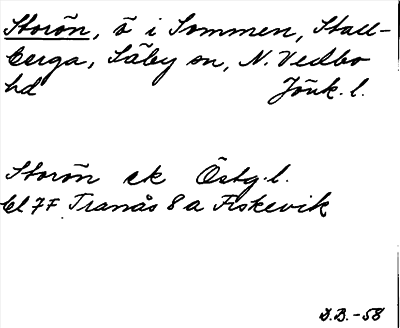 Storön, ö i Sommen, Stall-
berga, Säby sn, N. Vedbo
hd Jönk. l.
Storön ek Östg. l.
bl 7F Tranås 8 a Fiskevik
D.B. -58